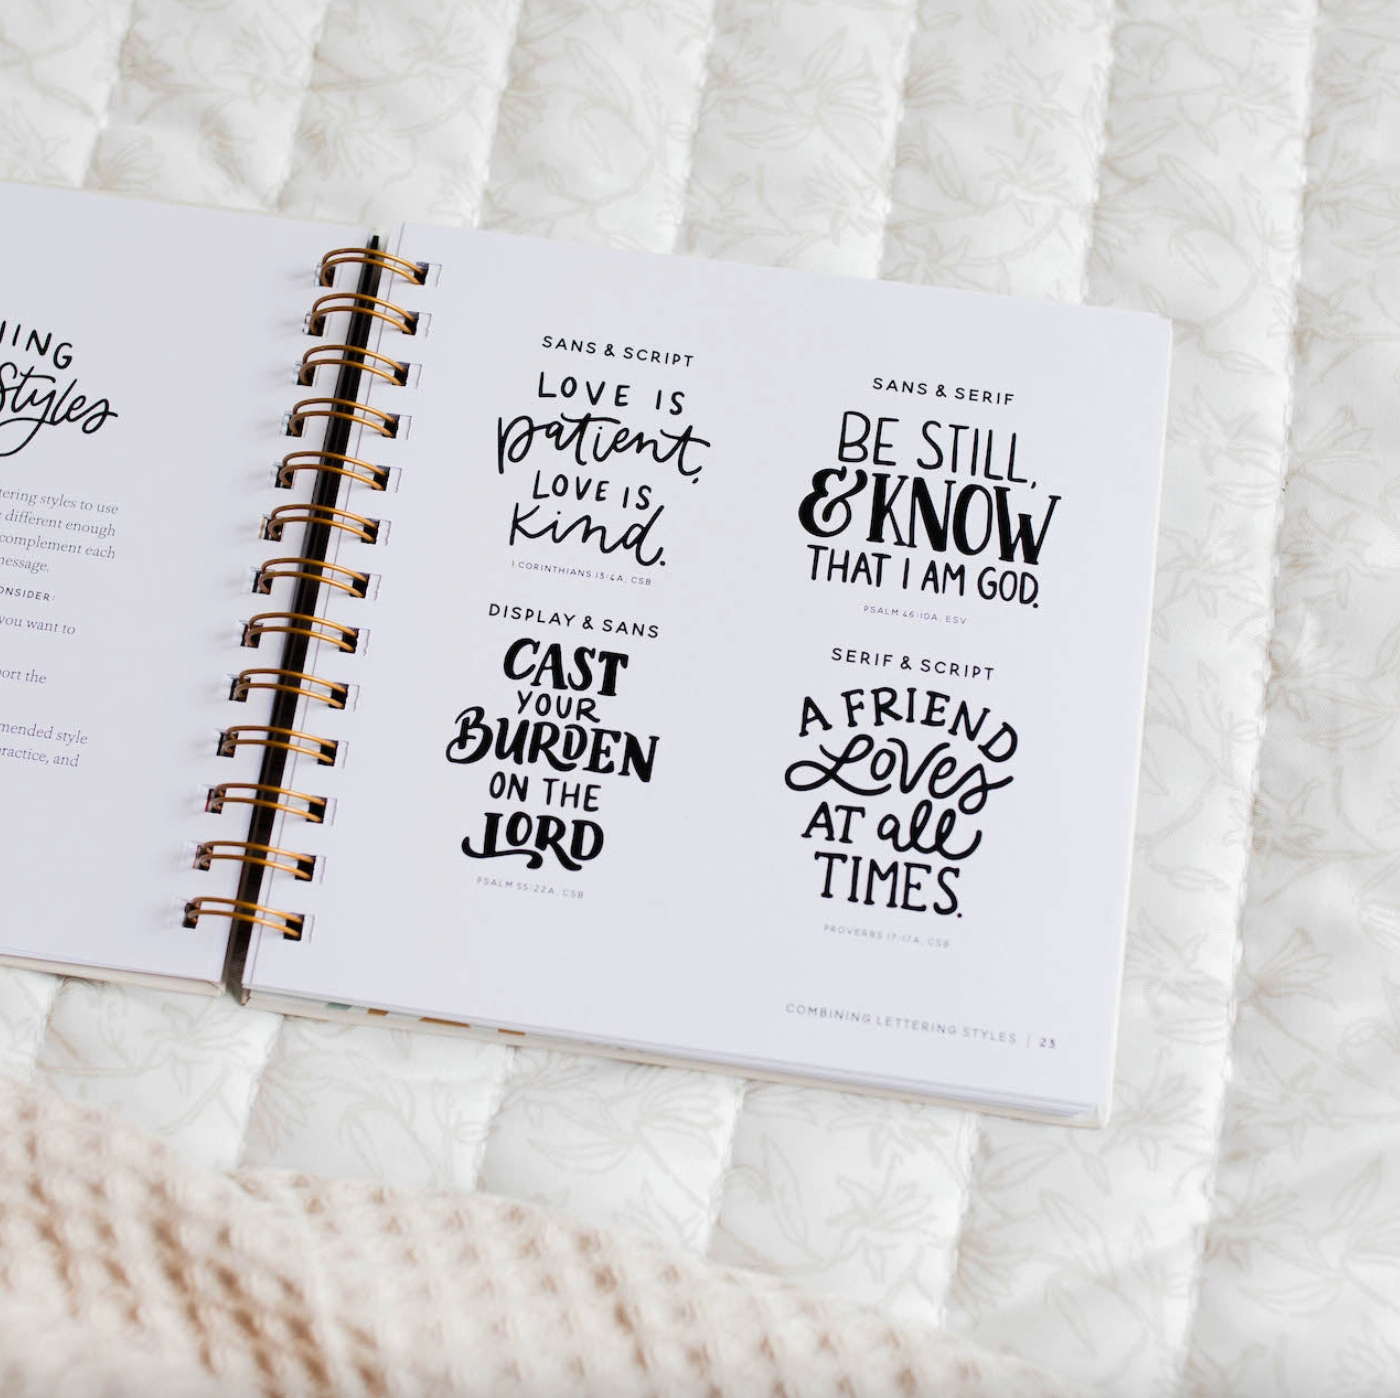 NING
Styles
tering styles to use
different enough
complement each
message.
ONSIDER:
you want to
port the
mended style
practice, and
SANS & SCRIPT
LOVE IS
patient,
LOVE IS
kind.
1 CORINTHIANS 13:4A, CSB
SANS & SERIF
BE STILL,
& KNOW
THAT I AM GOD.
PSALM 46:10A, ESV
DISPLAY & SANS
CAST
YOUR
BURDEN
ON THE
LORD
PSALM 55:22A, CSB
SERIF & SCRIPT
A FRIEND
Loves
AT all
TIMES.
PROVERBS 17:17A, CSB
COMBINING LETTERING STYLES | 23